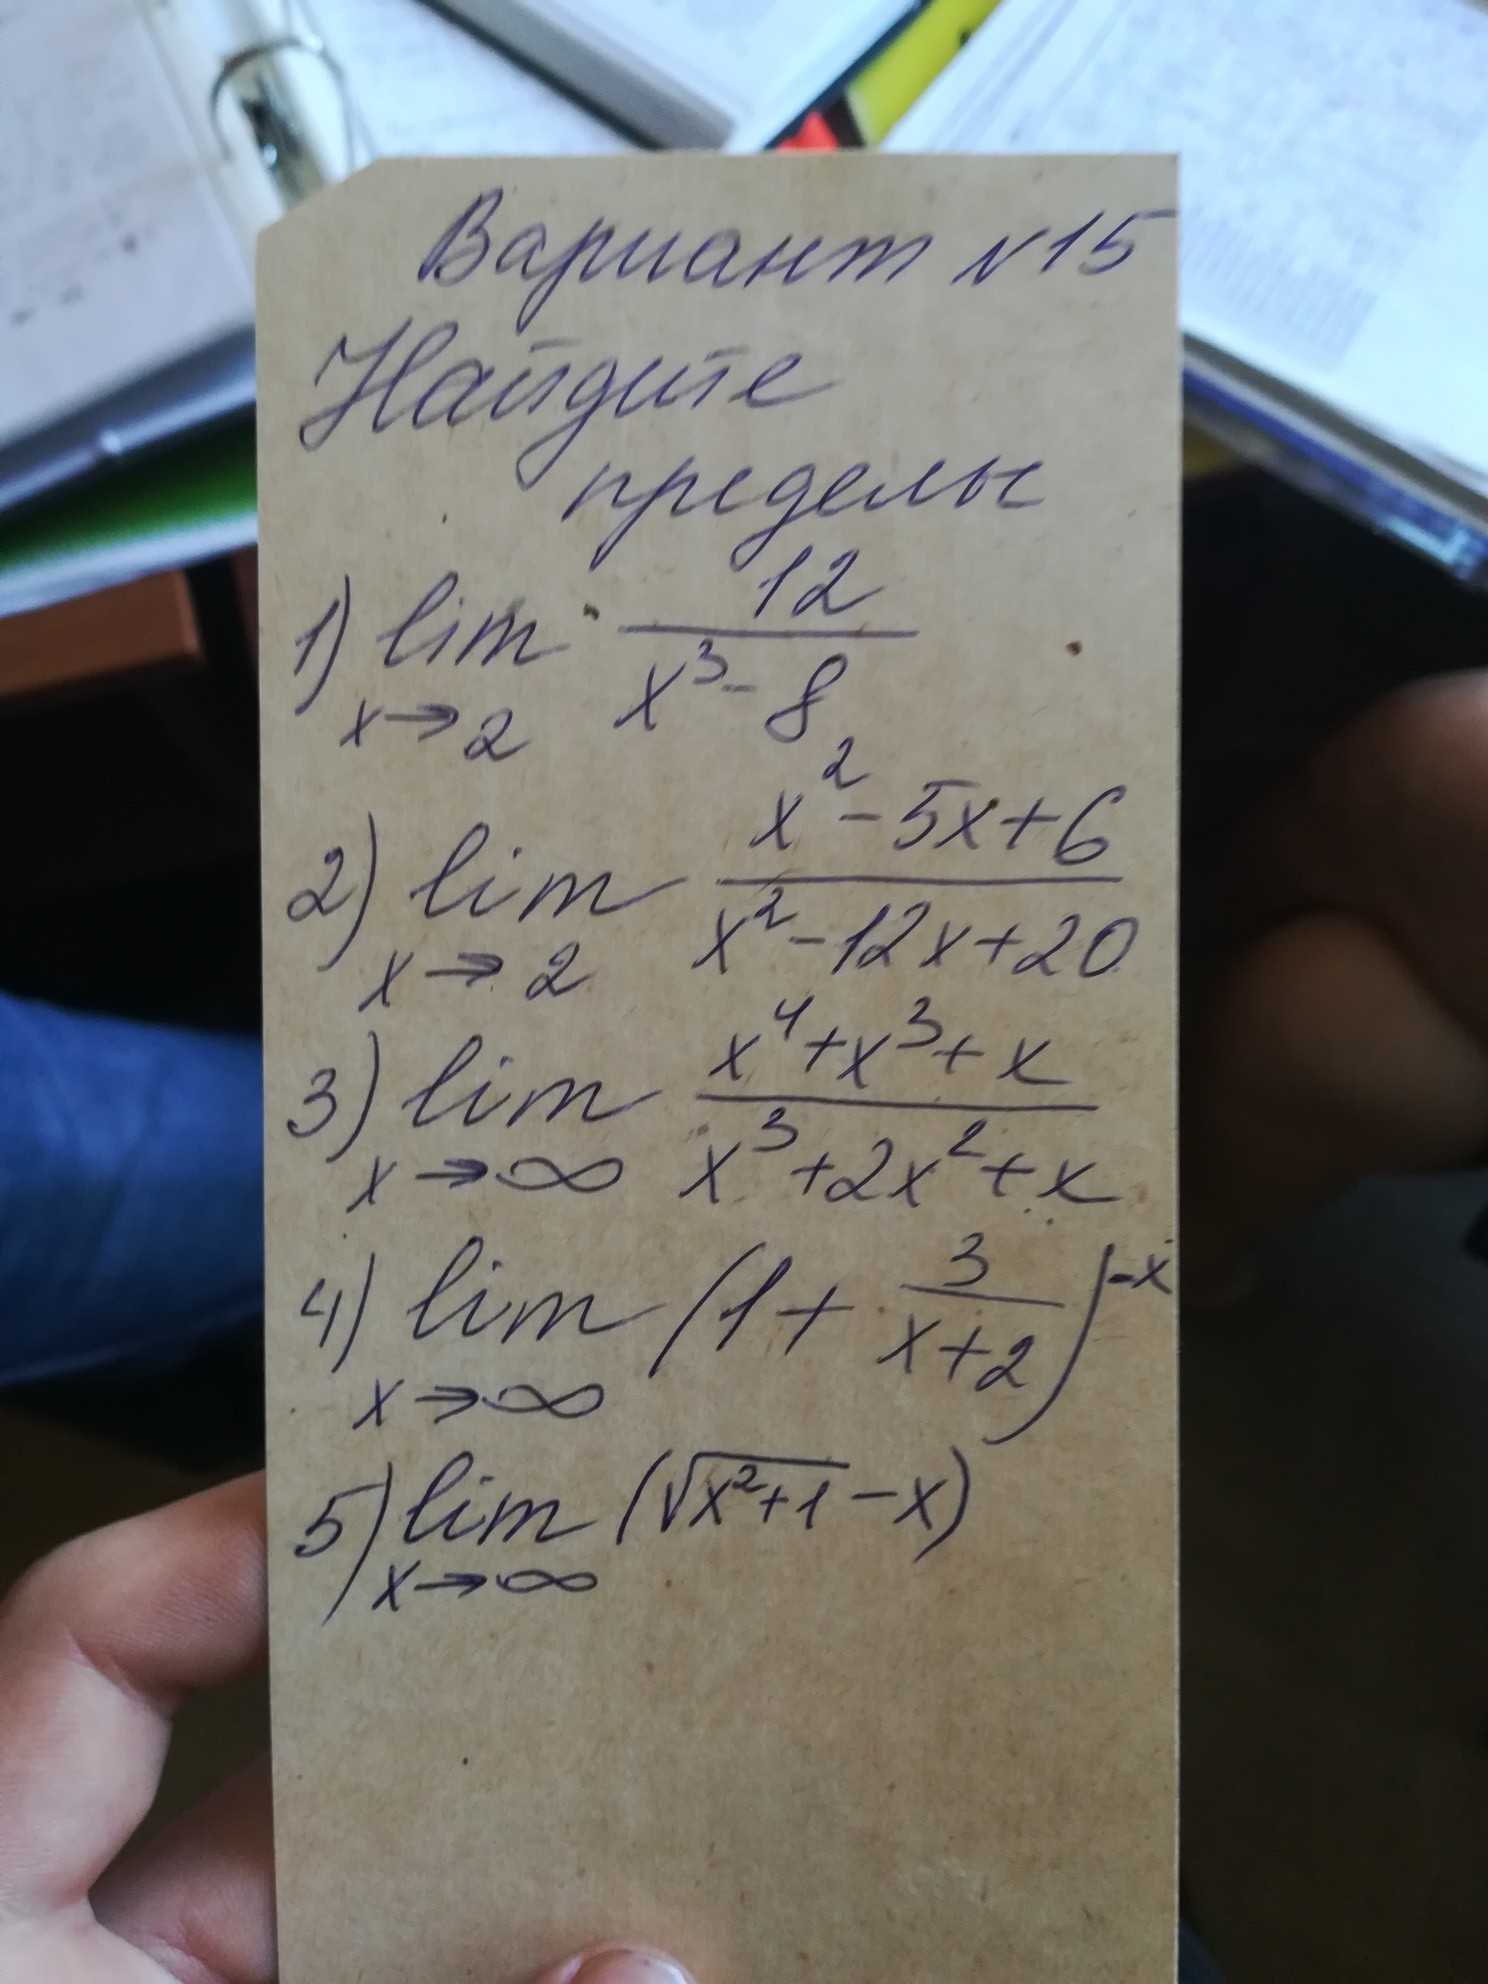 Вариант №15
Найдите
пределы
1) lim 12/(x³-8)
x→2
2) lim (x²-5x+6)/(x²-12x+20)
x→2
3) lim (x⁴+x³+x)/(x³+2x²+x)
x→∞
4) lim (1+3/(x+2))^(-x)
x→∞
5) lim (√(x²+1)-x)
x→∞